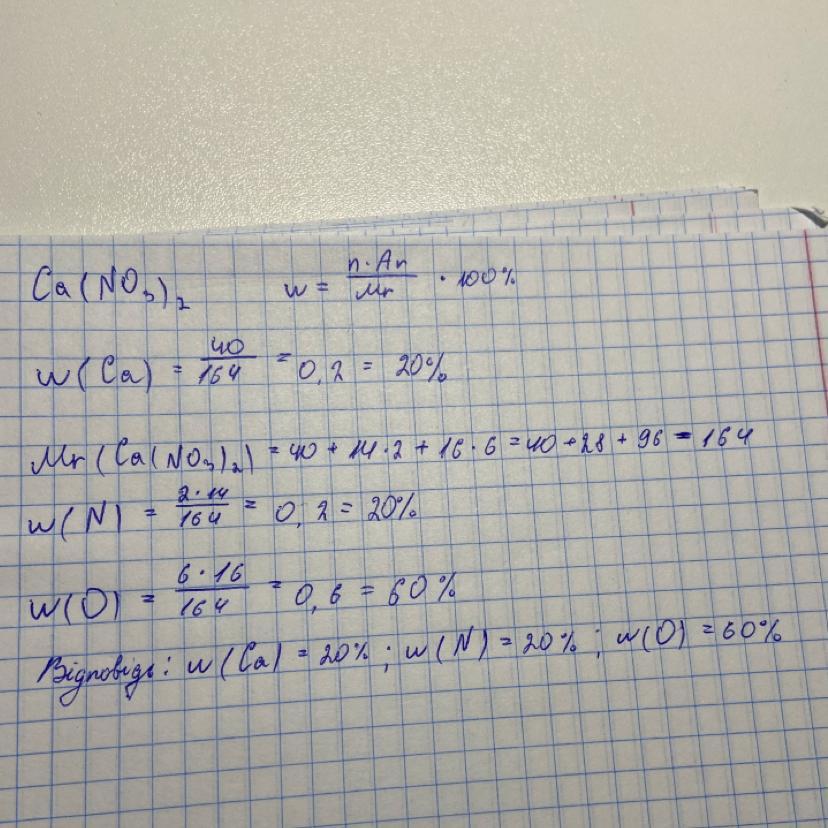 Ca(NO₃)₂ w = n·Ar/Mr · 100%
w(Ca) = 40/164 = 0,2 = 20%
Mr(Ca(NO₃)₂) = 40 + 14·2 + 16·6 = 40 + 28 + 96 = 164
w(N) = 2·14/164 = 0,2 = 20%
w(O) = 6·16/164 = 0,6 = 60%
Відповідь: w(Ca) = 20%; w(N) = 20%; w(O) = 60%